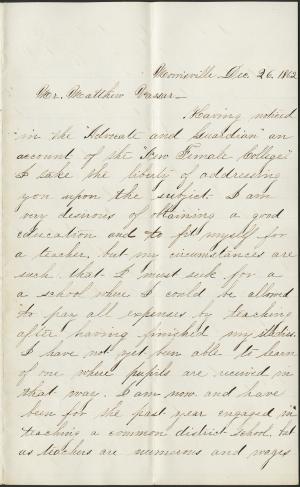 Morrisville Dec. 26, 1862
Mr. Matthew Vassar-
Having noticed
in the "Advocate and Guardian" an
account of the "New Female College"
I take the liberty of addressing
you upon the subject. I am
very desirous of obtaining a good
education and to fit myself for
a teacher, but my circumstances are
such that I must seek for a
a school where I could be allowed
to pay all expenses by teaching
after having finished my studies.
I have not yet been able to learn
of one where pupils are received in
that way. I am now and have
been for the past year engaged in
teaching a common district school, but
as teachers are numerous and wages